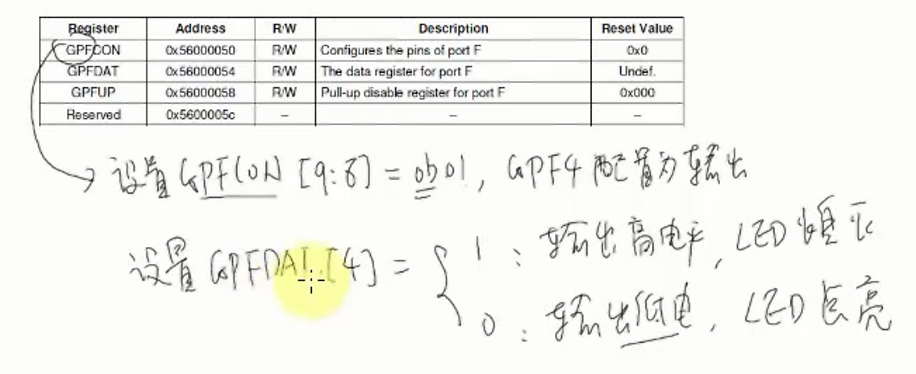 Register Address R/W Description Reset Value
GPFCON 0x56000050 R/W Configures the pins of port F 0x0
GPFDAT 0x56000054 R/W The data register for port F Undef.
GPFUP 0x56000058 R/W Pull-up disable register for port F 0x000
Reserved 0x5600005c – – –
设置GPFCON [9:8] = 0b01, GPF4配置为输出
设置GPFDAT [4] = { 1 : 输出高电平, LED熄灭
0 : 输出低电, LED点亮